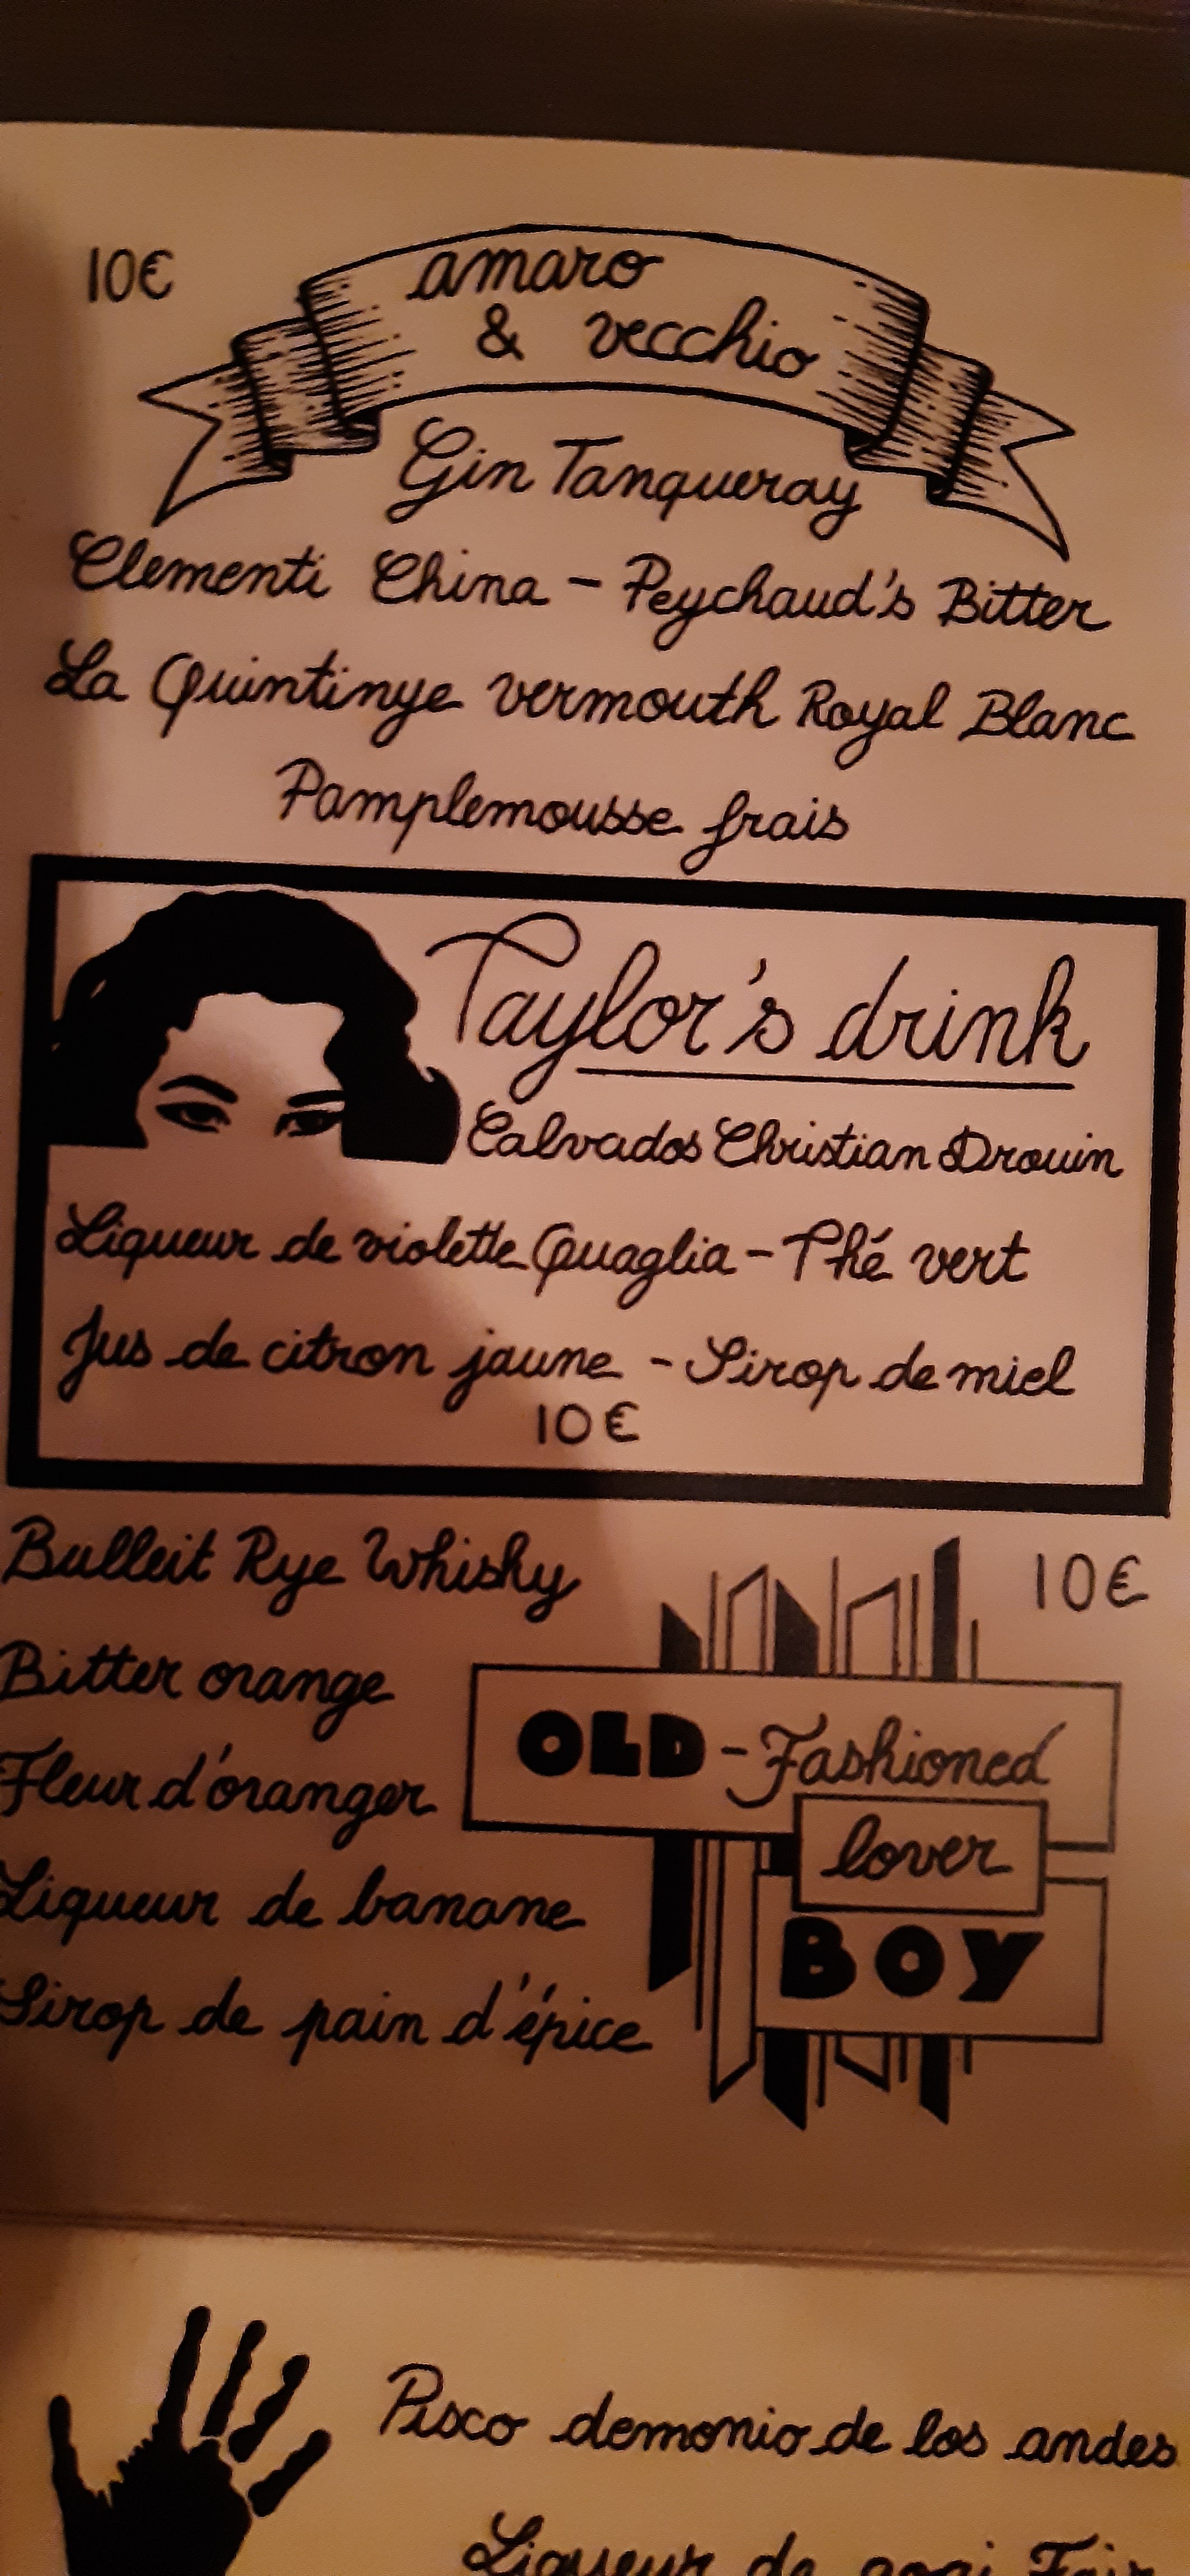 10€
amaro
& vecchio
Gin Tanqueray
Clementi China - Peychaud's Bitter
La Quintinye vermouth Royal Blanc
Pamplemousse frais
Taylor's drink
Calvados Christian Drouin
Liqueur de violette Quaglia - Thé vert
Jus de citron jaune - Sirop de miel
10€
Bulleit Rye Whisky
Bitter orange
Fleur d'oranger
Liqueur de banane
Sirop de pain d'épice
10€
OLD-Fashioned
lover
BOY
Pisco demonio de los andes
Liqueur de goji Fair